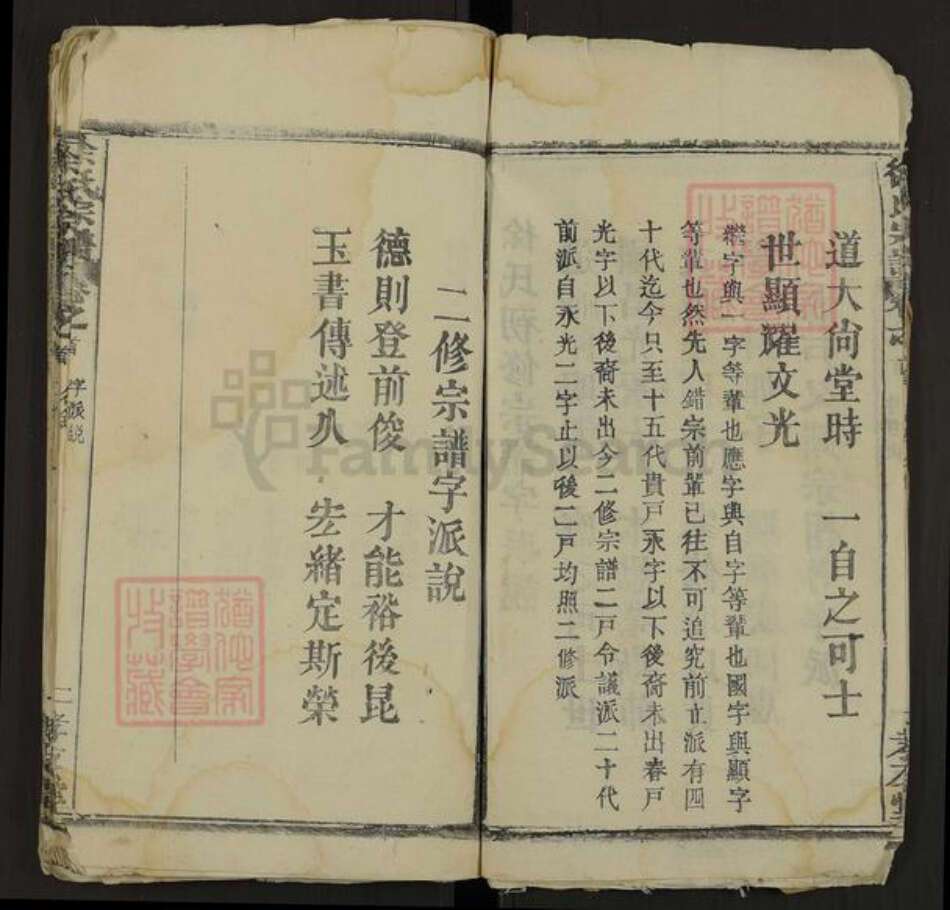 道大尙堂時　一自之可士
世顯耀文光
繼字與一字等輩也應字與自字等輩也國字與顯字
等輩也然先人錯宗前輩已往不可追究前立派有四
十代迄今只至十五代貴戶永字以下後裔未出春戶
光字以下後裔未出今二修宗譜二戶令議派二十代
前派自永光二字止以後二戶均照二修派
二修宗譜字派說
德則登前俊　才能裕後昆
玉書傳述久　先緒定斯榮
徐氏宗譜
字派說
二
FamilySearch